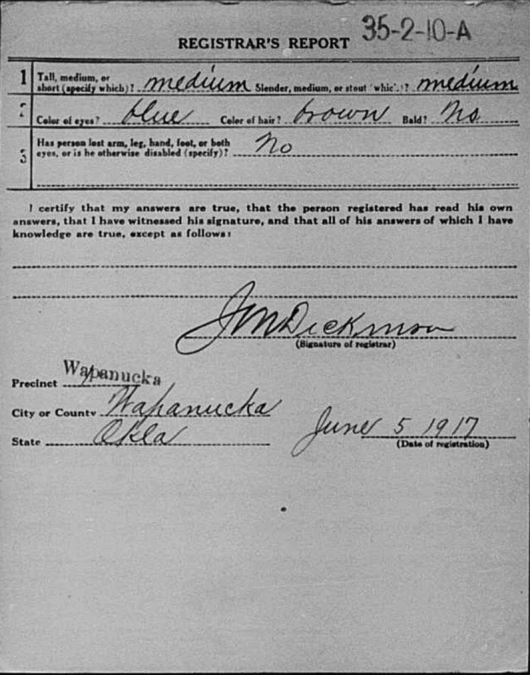 35-2-10-A
REGISTRAR'S REPORT
1 Tall, medium, or short (specify which)? medium Slender, medium, or stout (which)? medium
2 Color of eyes? blue Color of hair? brown Bald? No
3 Has person lost arm, leg, hand, foot, or both
eyes, or is he otherwise disabled (specify)? No
I certify that my answers are true, that the person registered has read his own
answers, that I have witnessed his signature, and that all of his answers of which I have
knowledge are true, except as follows:
J M Dickinson
(Signature of registrar)
Precinct Wapanucka
City or County Wapanucka
State Okla
June 5 1917
(Date of registration)